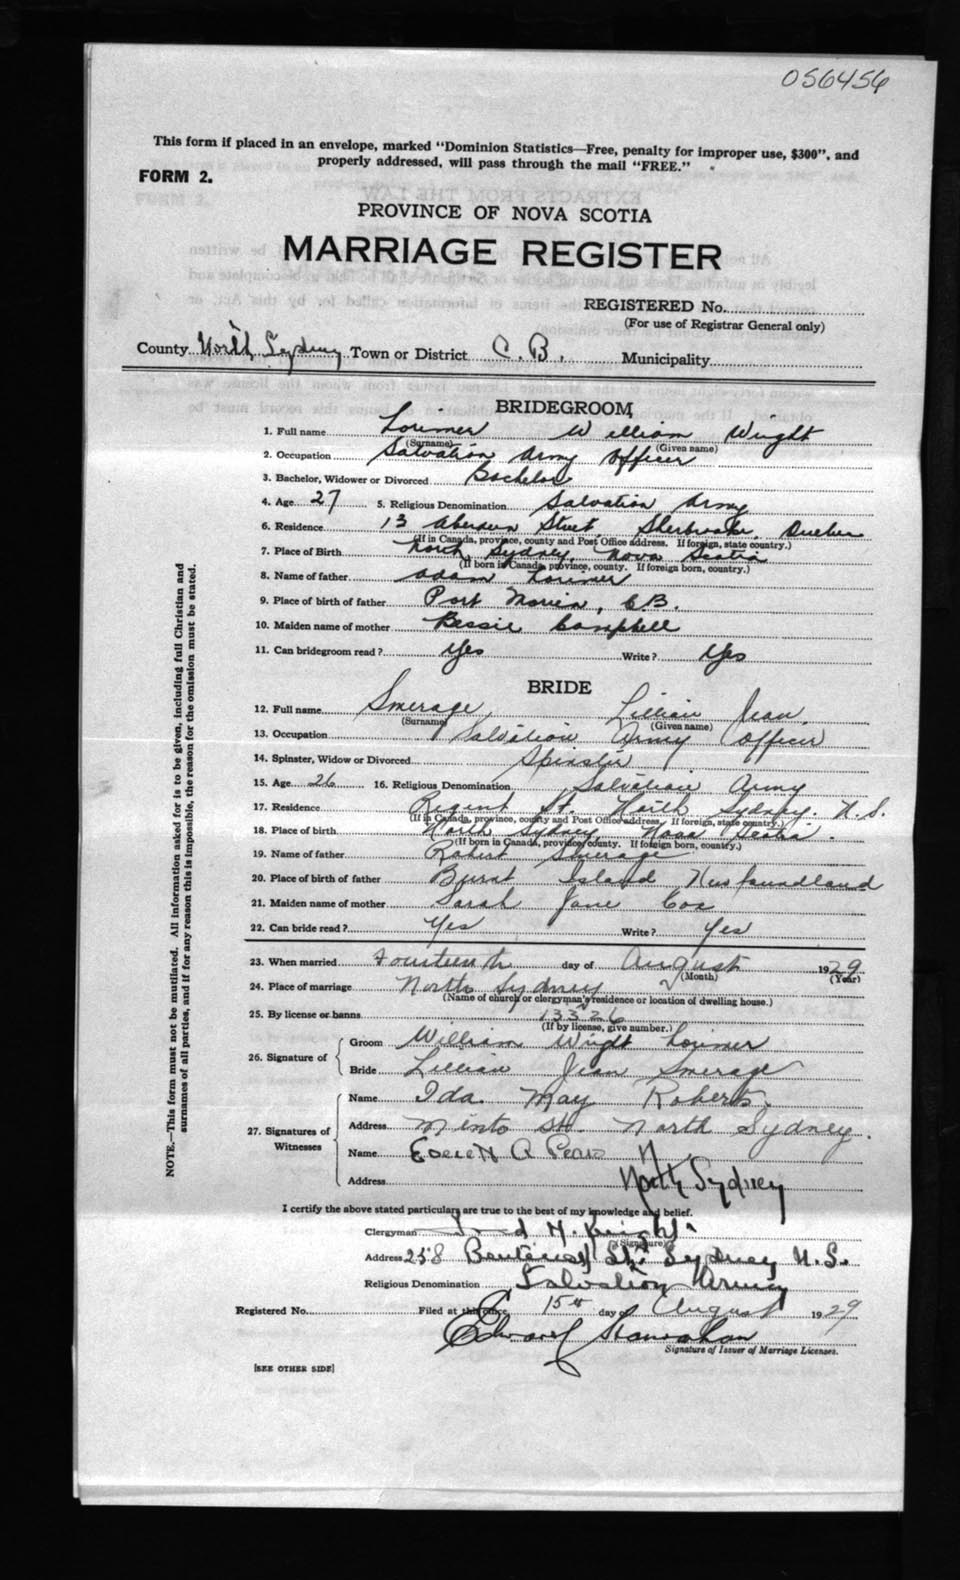 056456
This form if placed in an envelope, marked "Dominion Statistics—Free, penalty for improper use, $300", and
properly addressed, will pass through the mail "FREE."
FORM 2.
PROVINCE OF NOVA SCOTIA
MARRIAGE REGISTER
REGISTERED No.
(For use of Registrar General only)
County North Sydney Town or District C. B. Municipality
BRIDEGROOM
1. Full name Lorimer William Wright
(Surname) (Given name)
2. Occupation Salvation Army Officer
3. Bachelor, Widower or Divorced Bachelor
4. Age 27 5. Religious Denomination Salvation Army
6. Residence 13 Aberdeen Street Sherbrooke, Quebec
(If in Canada, province, county and Post Office address. If foreign, state country.)
7. Place of Birth North Sydney, Nova Scotia
(If born in Canada, province, county. If foreign born, country.)
8. Name of father Adam Lorimer
9. Place of birth of father Port Morien, C.B.
10. Maiden name of mother Bessie Campbell
11. Can bridegroom read? Yes Write? Yes
BRIDE
12. Full name Smerage, Lillian Jean.
(Surname) (Given name)
13. Occupation Salvation Army Officer
14. Spinster, Widow or Divorced Spinster
15. Age 26 16. Religious Denomination Salvation Army
17. Residence Regent St. North Sydney. N.S.
(If in Canada, province, county and Post Office address. If foreign, state country.)
18. Place of birth North Sydney, Nova Scotia.
(If born in Canada, province, county. If foreign born, country.)
19. Name of father Robert Smerage
20. Place of birth of father Burnt Island Newfoundland
21. Maiden name of mother Sarah Jane Cox
22. Can bride read? Yes Write? Yes
23. When married Fourteenth day of August 1929
(Month) (Year)
24. Place of marriage North Sydney
(Name of church or clergyman's residence or location of dwelling house.)
25. By license or banns 13326
(If by license, give number.)
26. Signature of Groom William Wright Lorimer
Bride Lillian Jean Smerage
27. Signatures of Witnesses Name Ida May Roberts.
Address Minto St. North Sydney.
Name Everett A
Address North Sydney
I certify the above stated particulars are true to the best of my knowledge and belief.
Clergyman H. Knight
(Signature)
Address 258 St. Sydney N.S.
Religious Denomination Salvation Army
Registered No. Filed at this office, 15th day of August 1929
Edward
Signature of Issuer of Marriage Licenses.
[SEE OTHER SIDE]
NOTE.—This form must not be mutilated. All information asked for is to be given, including full Christian and
surnames of all parties, and if for any reason this is impossible, the reason for the omission must be stated.